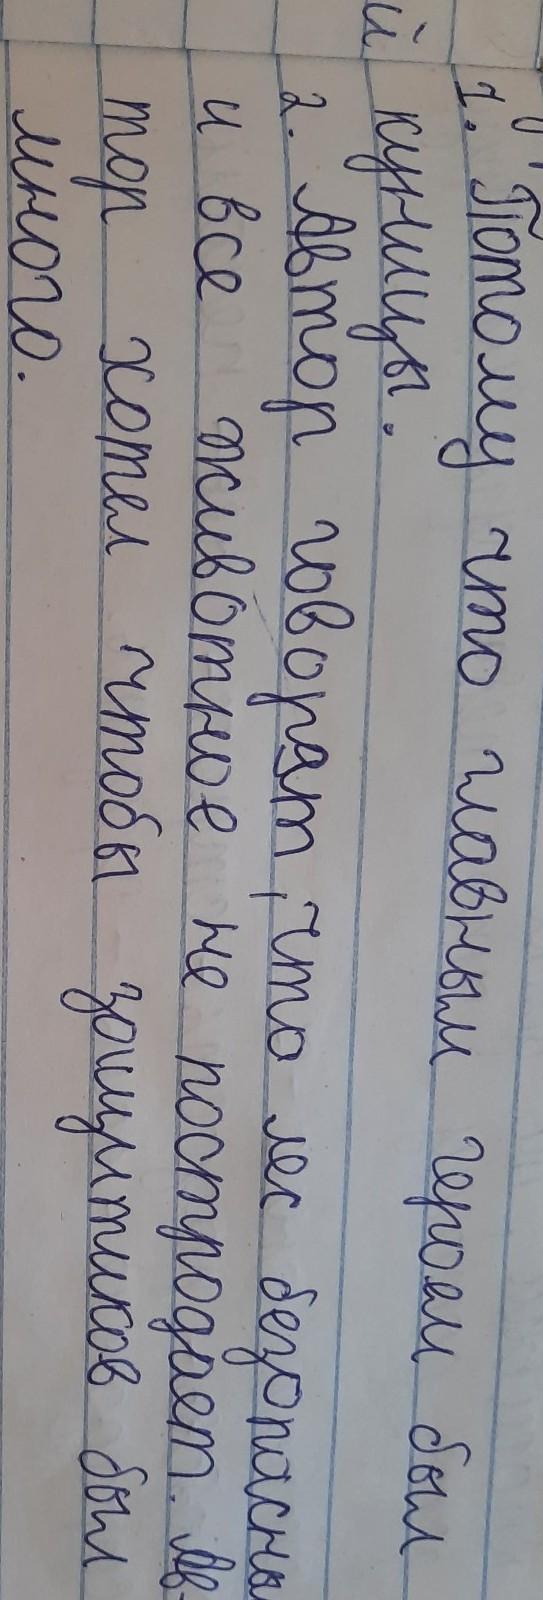 й
1. Потому что главным героем был
куницы.
2. Автор говорят, что лес безопасны
и все животное не постродает. Ав-
тор хотел чтобы зощитиков был
много.